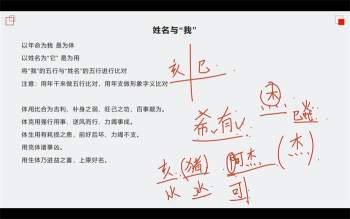 姓名与“我”
以年命为我 是为体
以姓名为“它” 是为用
将“我”的五行与“姓名”的五行进行比对
注意：用年干来做五行比对，用年支做形象字义比对
体用比合为吉利，补身之弱，旺己之功，百事顺为。
体克用强行用事，逆风而行，力竭事成。
体生用有耗损之患，前好后坏，力竭不支。
用克体诸事凶。
用生体乃进益之喜，上乘好名。
亥 巳
杰
希有
亥 (猪) 阿杰 (杰)
水 水 可